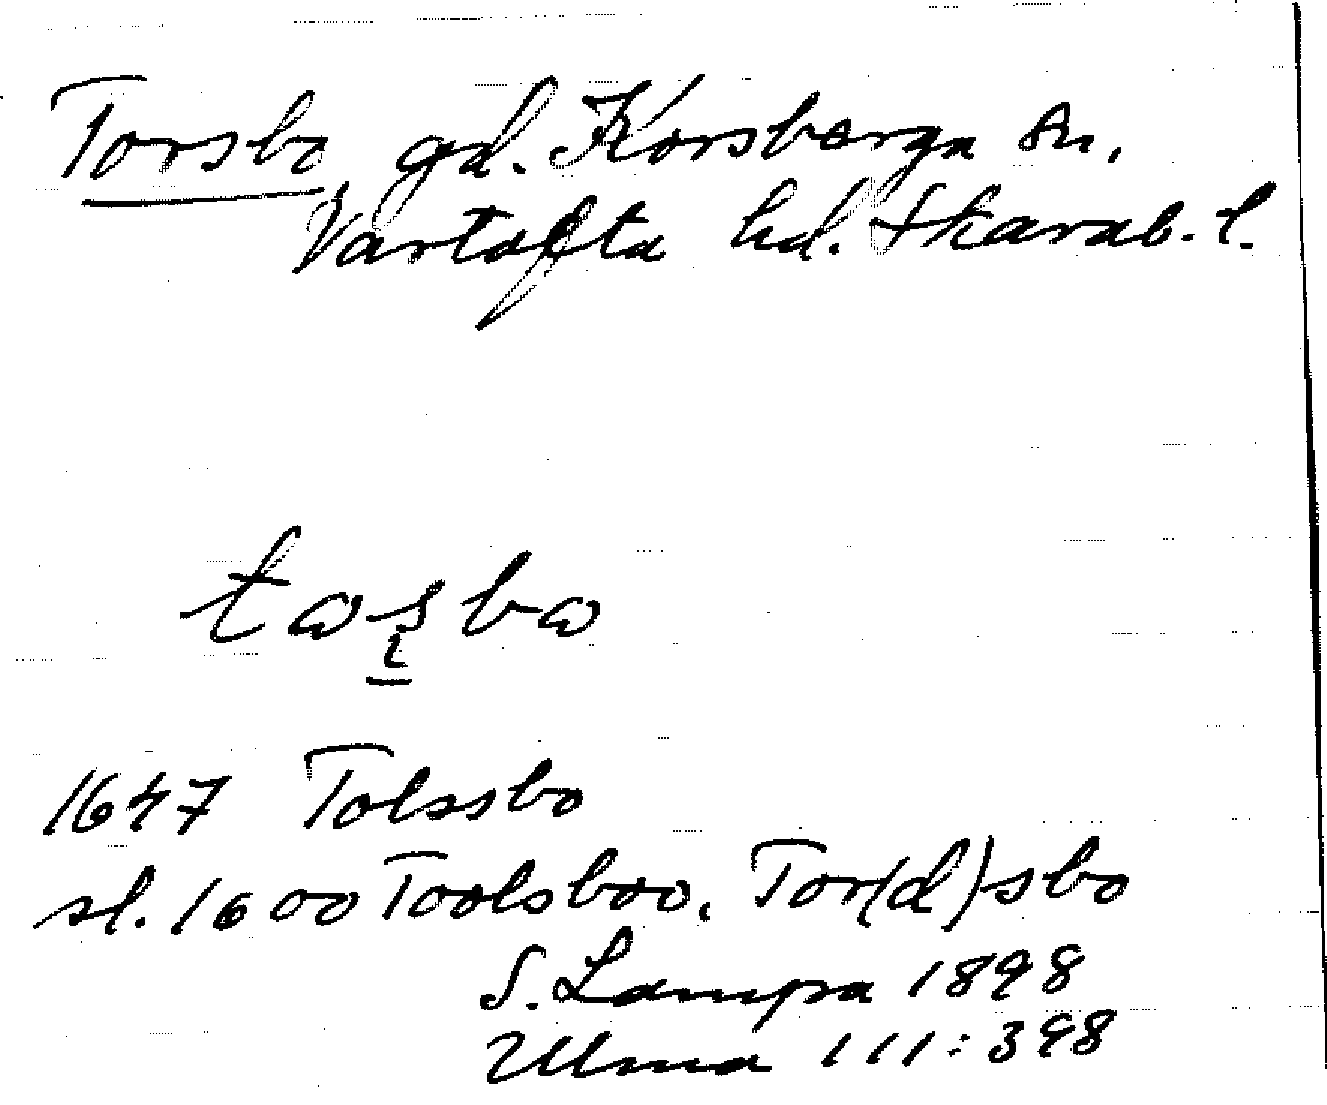 Torsbo, gd. Korsberga sn,
Vartofta hd. Skarab. l.
1647 Tolssbo
sl. 1600 Toolsboo, Tor(d)sbo
S. Lampa 1898
Ulma 111:398